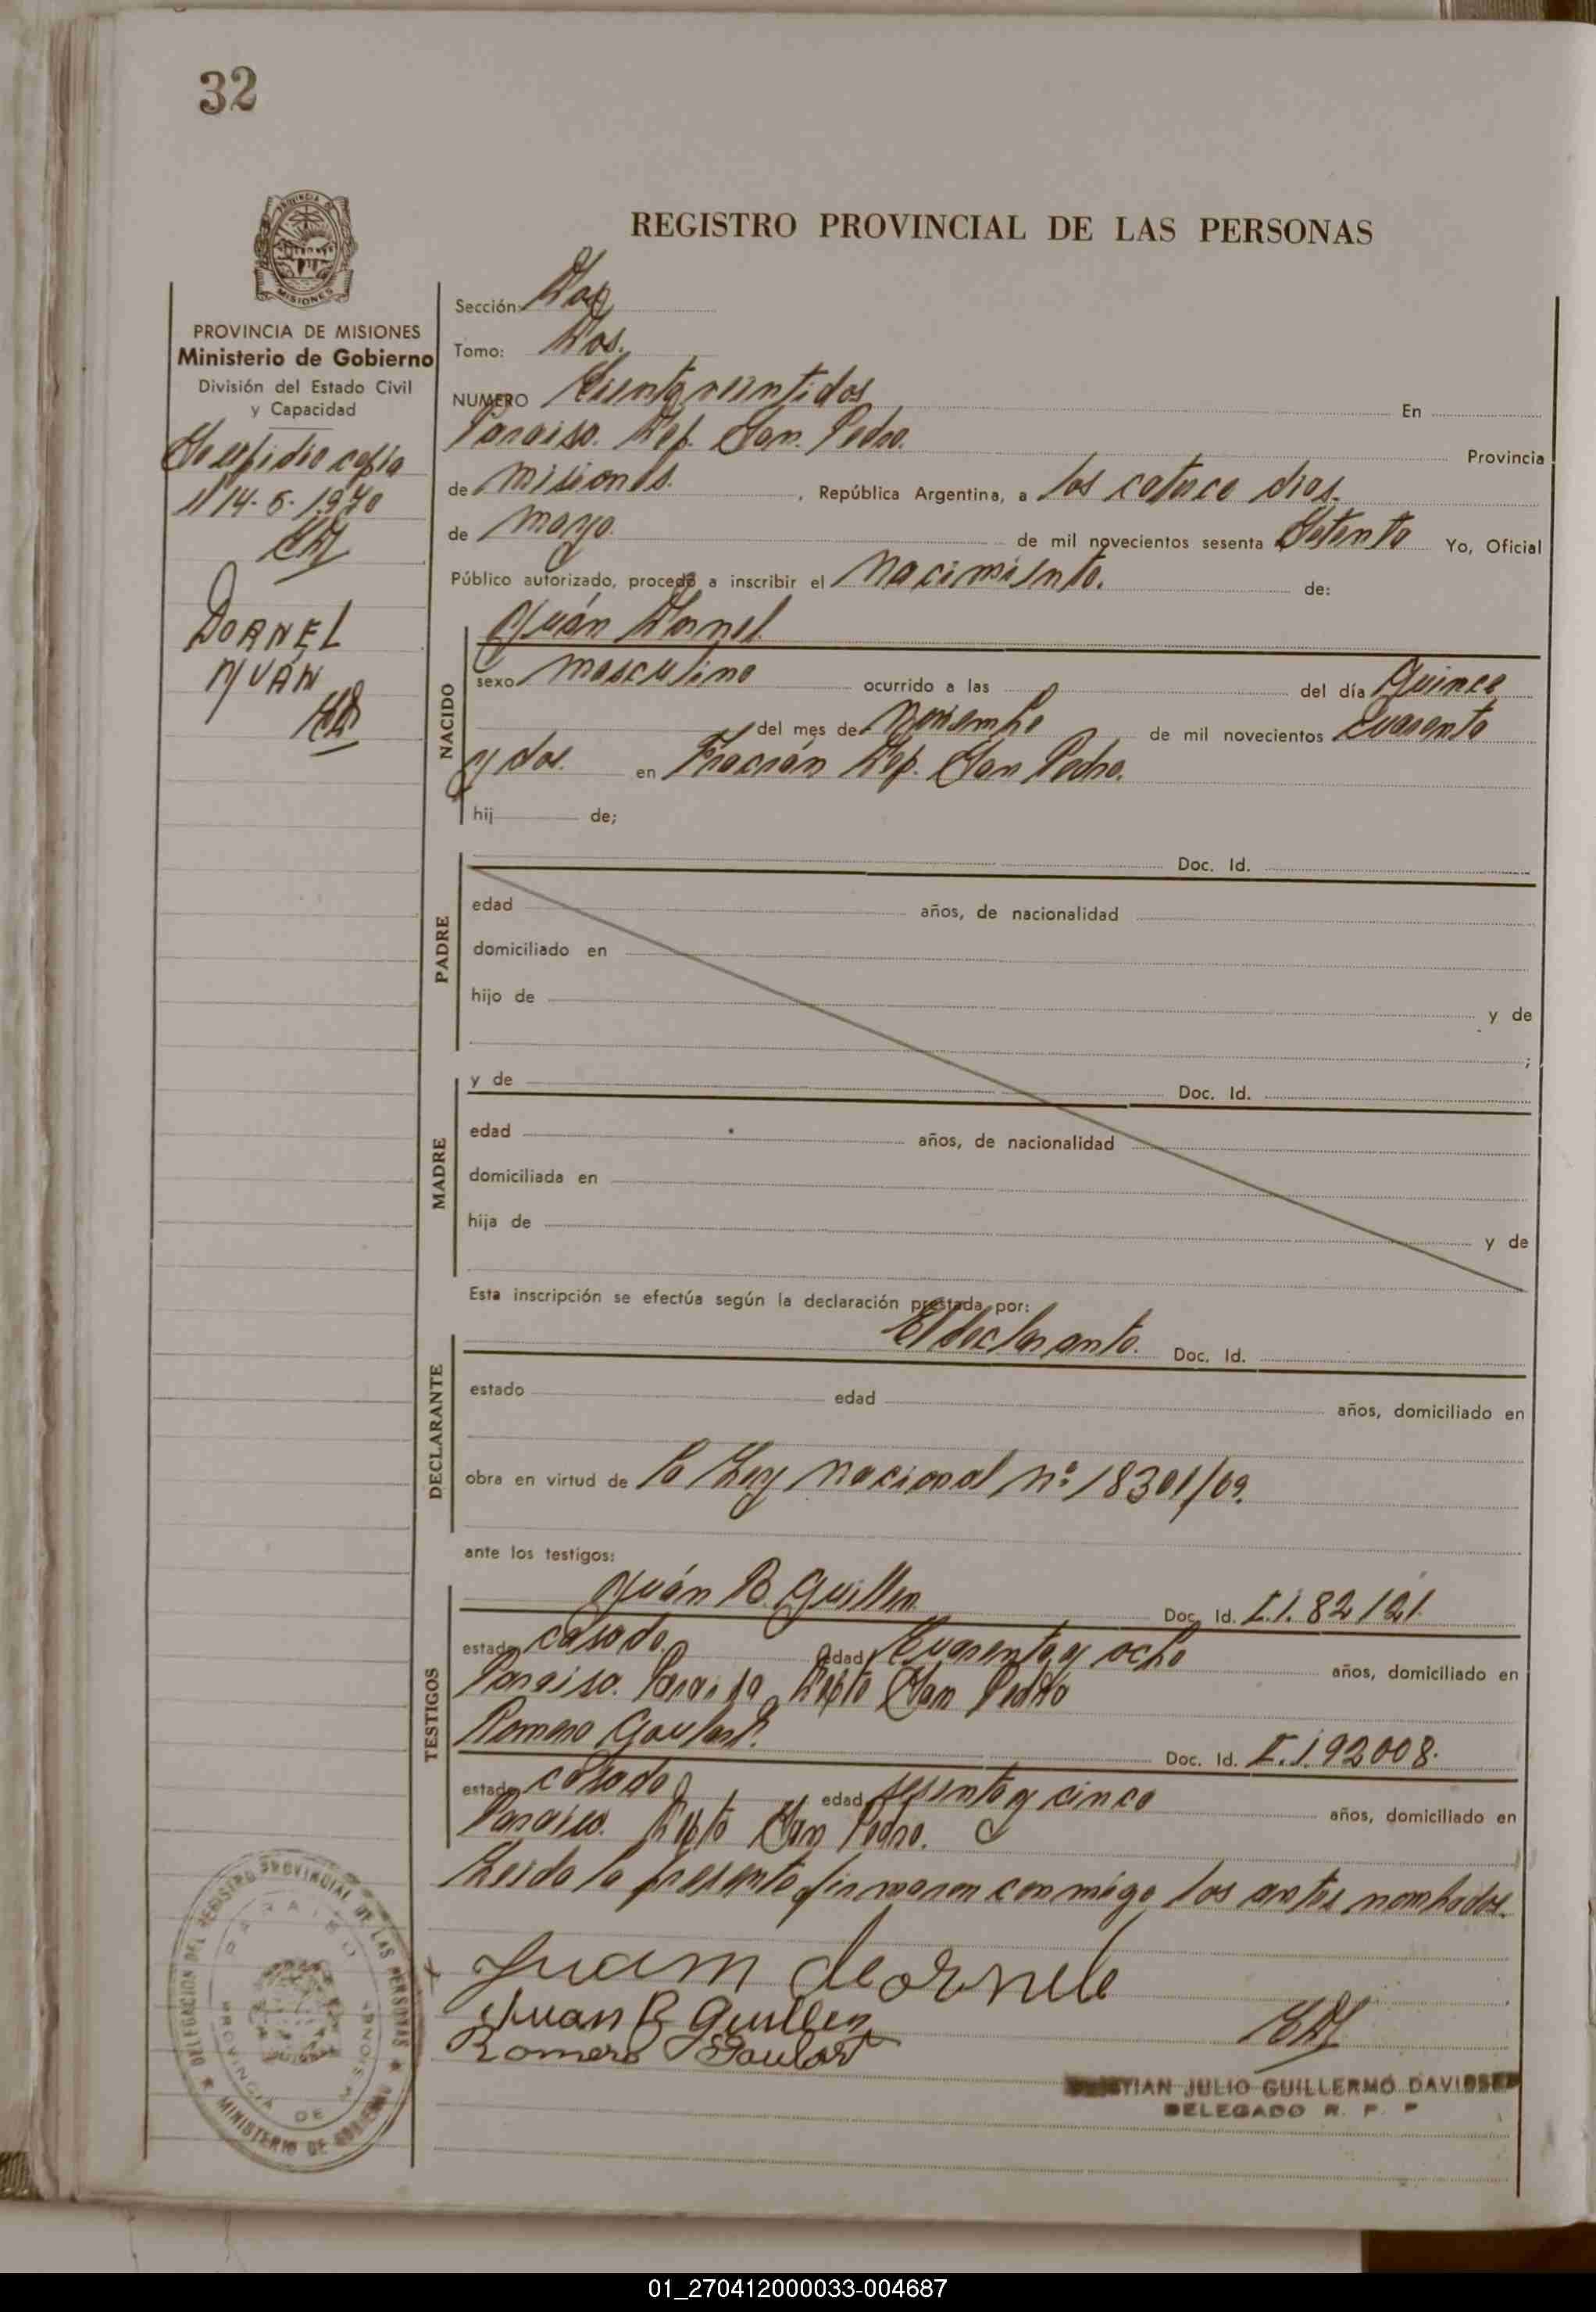 32
REGISTRO PROVINCIAL DE LAS PERSONAS
MISIONES
PROVINCIA DE MISIONES
Ministerio de Gobierno
División del Estado Civil
y Capacidad
Se expidio copia
14-5-1970
DORNEL
JUÁN
Sección: Dos
Tomo: Dos.
NUMERO Cientoveintidos En
Paraiso. Dep. San Pedro. Provincia
de Misiones. , República Argentina, a los catorce dias.
de mayo. de mil novecientos sesenta Setenta Yo, Oficial
Público autorizado, procedo a inscribir el Nacimiento. de:
NACIDO
Juán Dornel.
sexo masculino ocurrido a las del día Quince
del mes de Noviembre de mil novecientos Cuarenta
y dos. en Fracrán Dep. San Pedro.
hij de;
PADRE
Doc. Id.
edad años, de nacionalidad
domiciliado en
hijo de y de
;
MADRE
y de Doc. Id.
edad años, de nacionalidad
domiciliada en
hija de y de
Esta inscripción se efectúa según la declaración prestada por:
DECLARANTE
El declarante. Doc. Id.
estado edad años, domiciliado en
obra en virtud de la Ley Nacional Nº 18301/69.
ante los testigos:
TESTIGOS
Juán B. Guillen Doc. Id. I.1.82121.
estado casado. edad Cuarenta y ocho años, domiciliado en
Paraiso. Paraiso Depto San Pedro
Romero Goulart. Doc. Id. I.1.92008.
estado casado edad sesenta y cinco años, domiciliado en
Paraiso. Depto San Pedro.
Leida la presente firmaron conmigo los antes nombrados.
Juam deornele
Juan B Guillen
Romero Goulart
JULIO GUILLERMO
DELEGADO R. P. P
DELEGACION DEL REGISTRO PROVINCIAL DE LAS PERSONAS
PARAISO
PROVINCIA DE MISIONES
MINISTERIO DE GOBIERNO
01_270412000033-004687